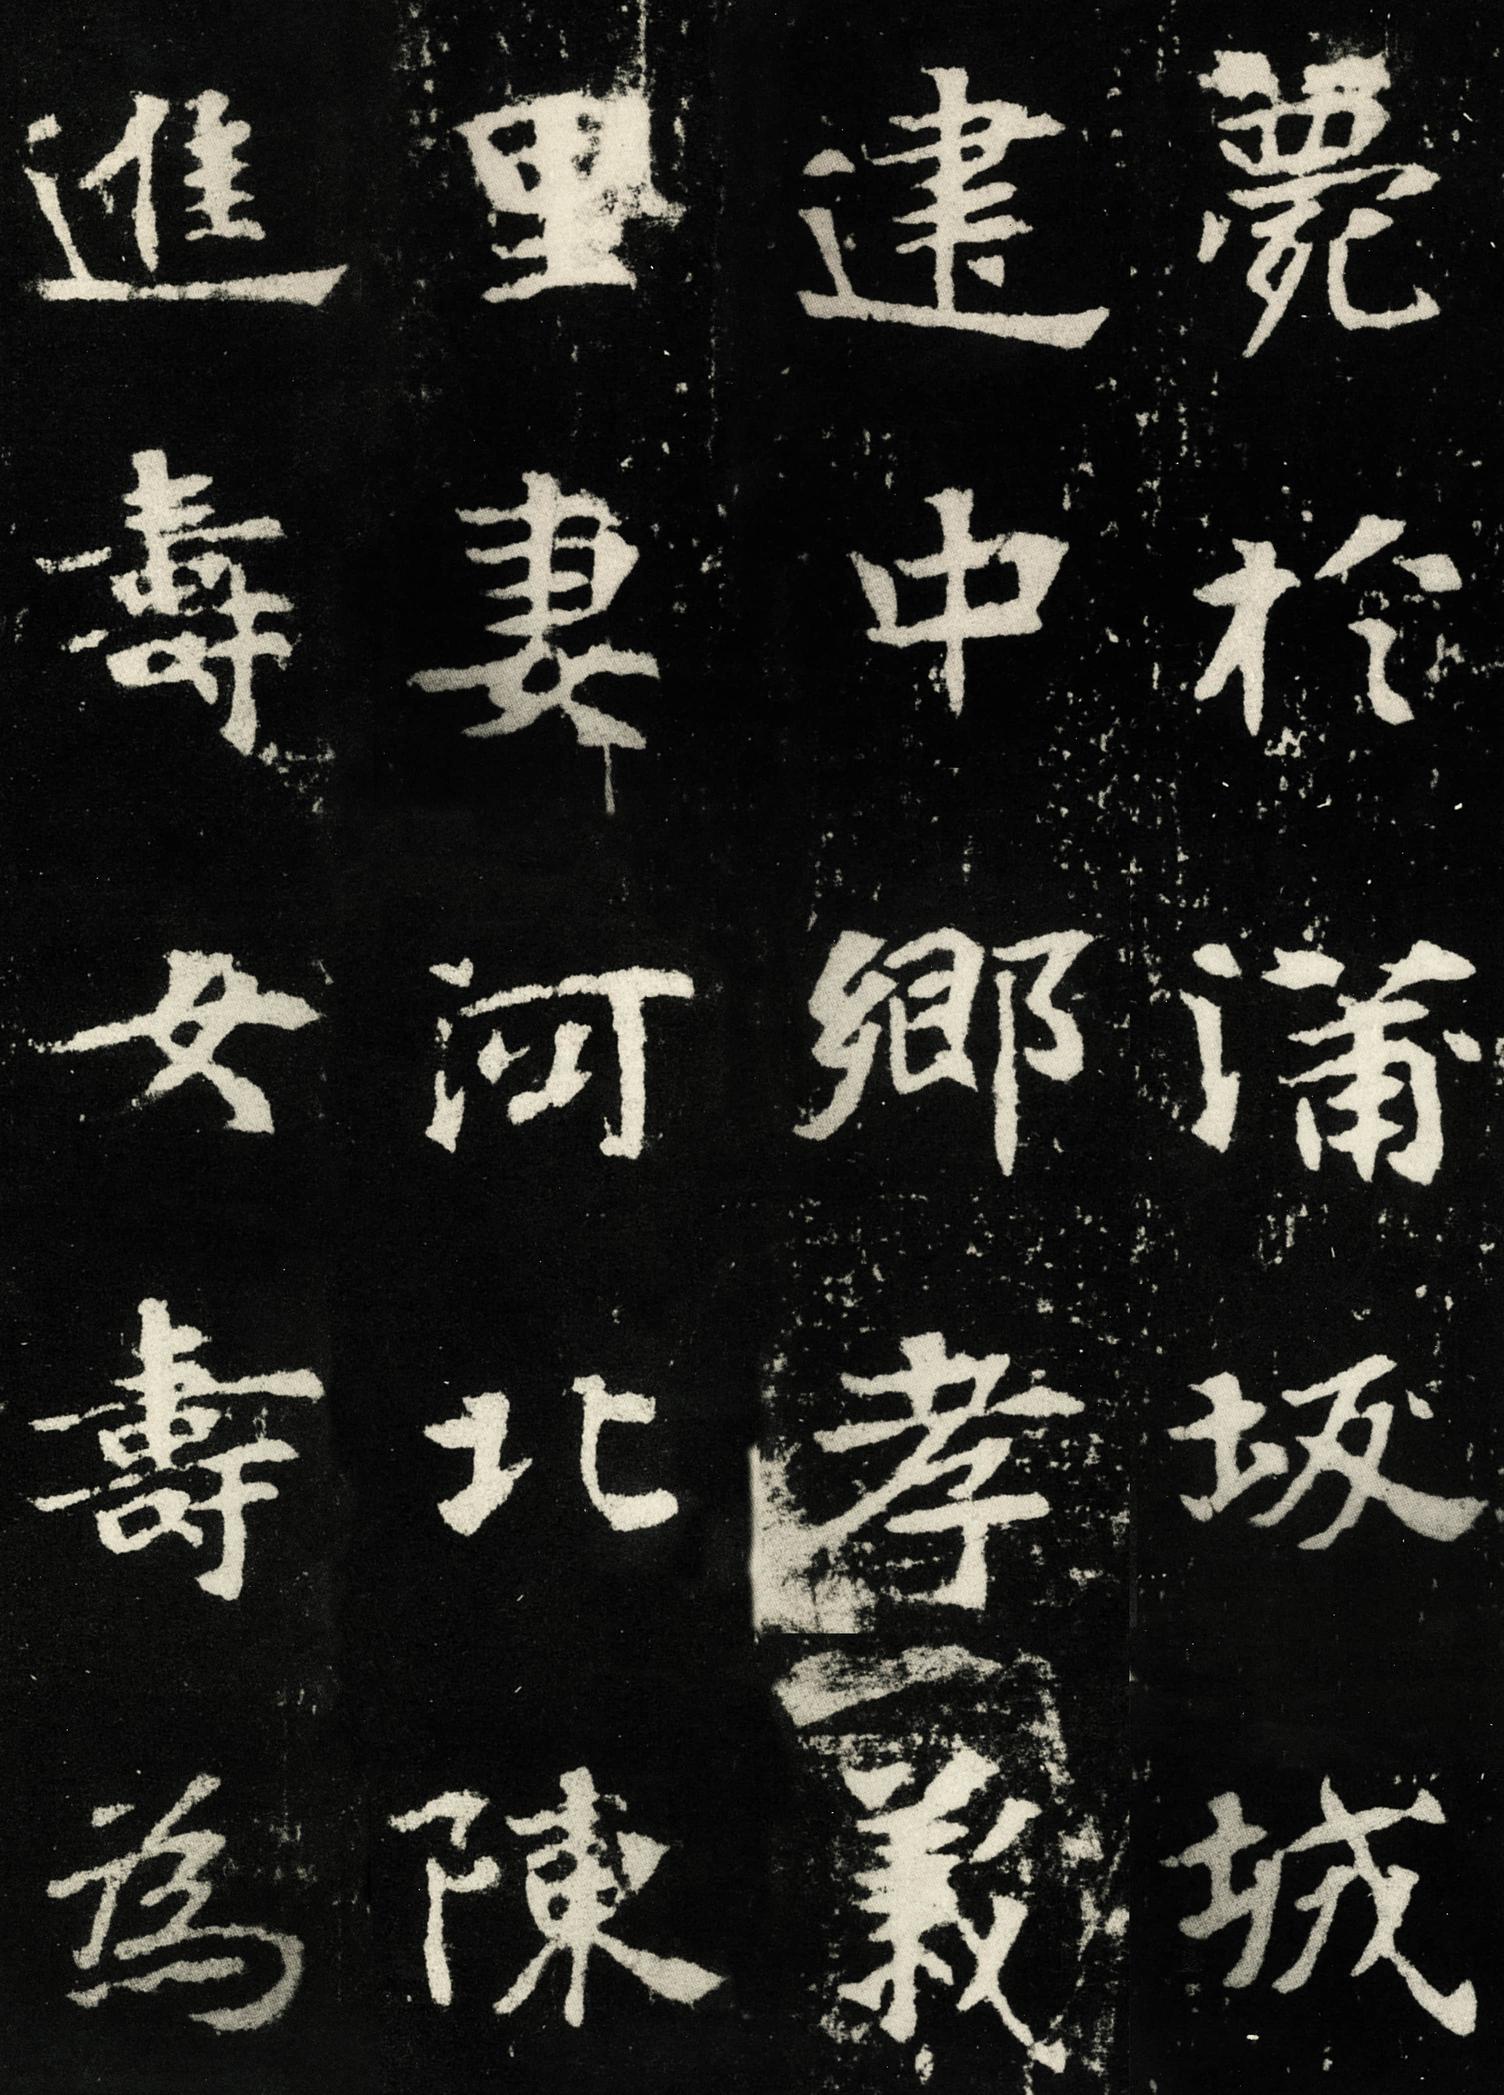 薨於蒲坂城
建中鄉孝義
里妻河北陳
進壽女壽為